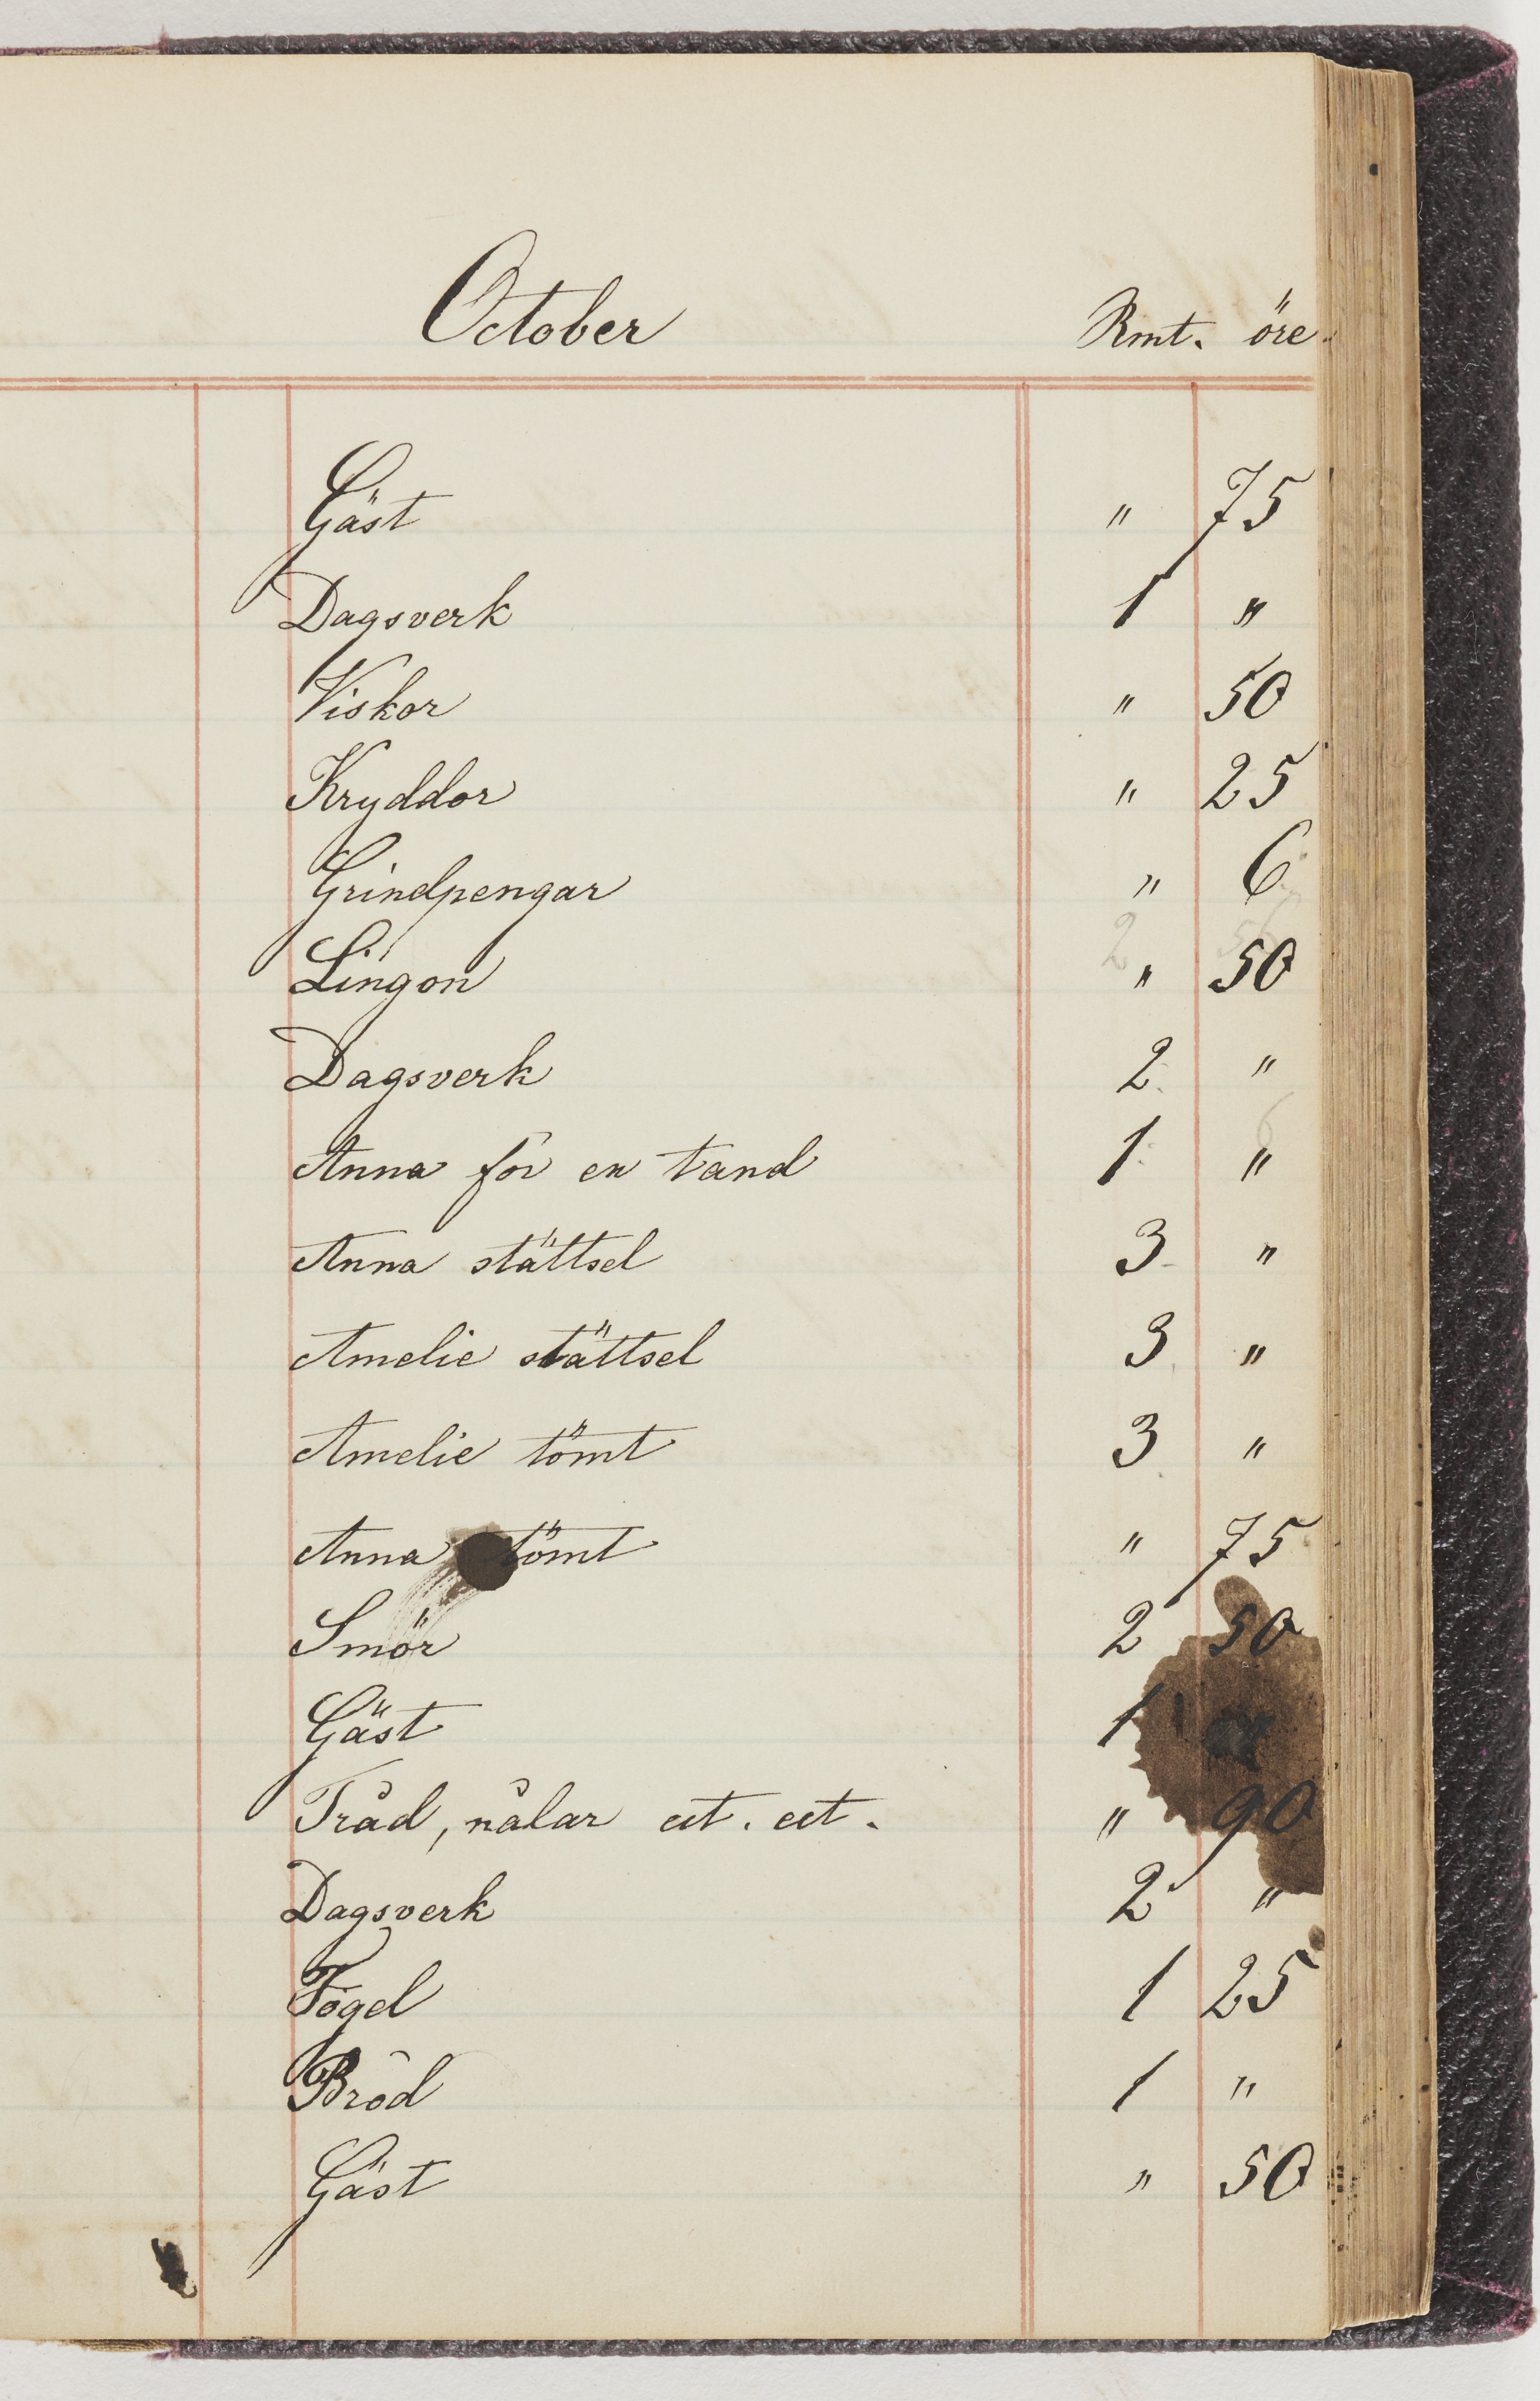 October Rmt. öre.
Gäst " 75
Dagsverk 1 "
Viskor " 50
Kryddor " 25
Grindpengar " 6
2 56
Lingon " 50
Dagsverk 2 "
Anna för en tand 1 "
Anna stättsel 3 "
Amelie stättsel 3 "
Amelie tömt 3 "
Anna tömt " 75
Smör 2 50
Gäst 1
Tråd, nålar cet. cet. " 90
Dagsverk 2 "
Fogel 1 25
Bröd 1 "
Gäst " 50